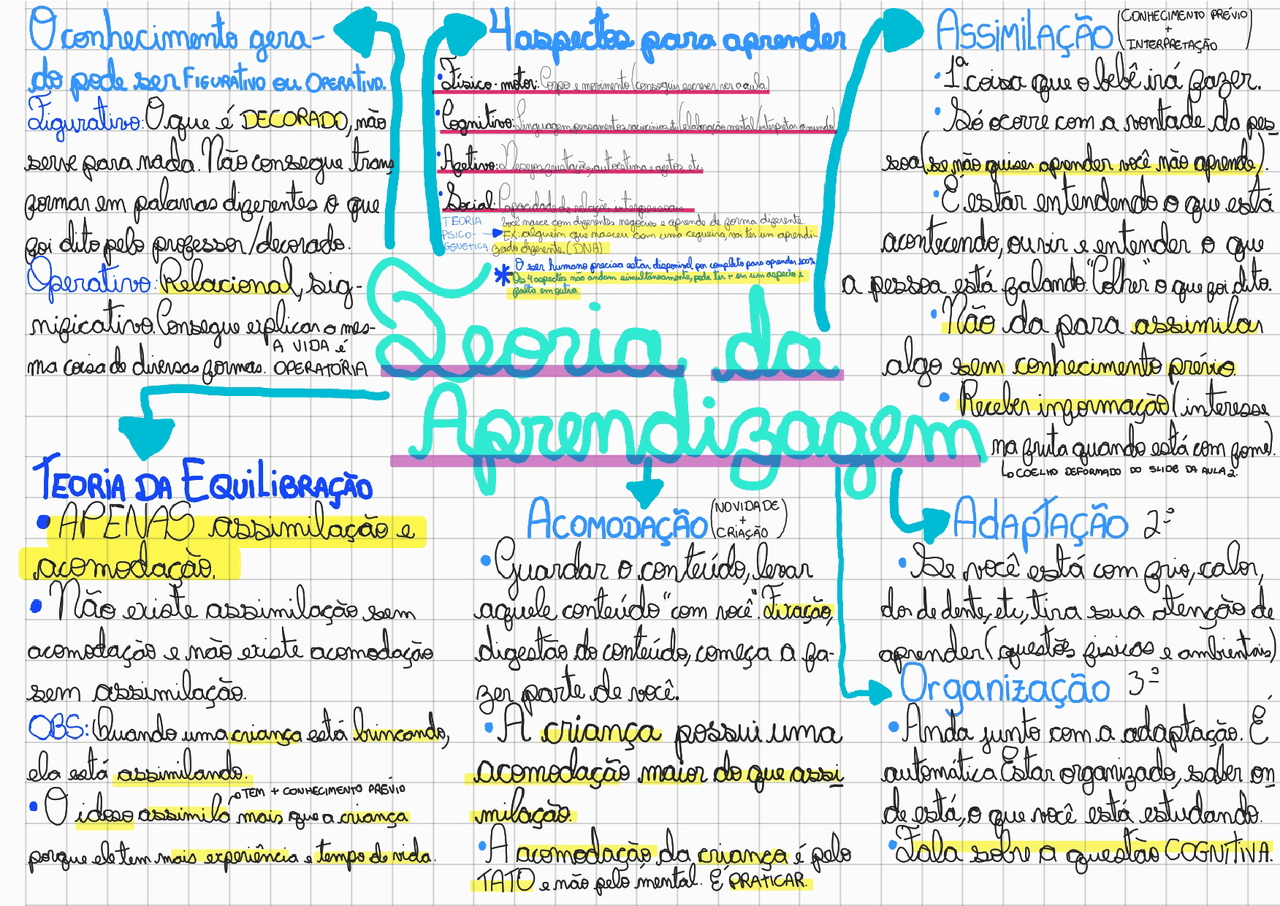 O conhecimento gera-
do pode ser FIGURATIVO OU OPERATIVO.
Figurativo: O que é DECORADO, não
serve para nada. Não consegue trans
formar em palavras diferentes o que
foi dito pelo professor/decorado.
Operativo: Relacional, sig-
nificativo. Consegue explicar a mes-
ma coisa de diversas formas. A VIDA É
OPERATÓRIA
4 aspectos para aprender
• Físico-motor: Corpo e movimento (consegui escrever, ver a aula)
• Cognitivo: linguagem, pensamentos, raciocínios (elaboração mental/interpretar o mundo)
• Afetivo: autoestima
• Social: Capacidade de relações interpessoais
TEORIA
PSICO-
GENÉTICA
você nasce com diferentes negócios e aprende de forma diferente.
Ex: alguém que nasceu com uma cegueira, vai ter um aprendi-
zado diferente. (DNA)
* O ser humano precisa estar disponível por completo para aprender 100%
Os 4 aspectos não andam simultaneamente, pode ter + em um aspecto e
falta em outro
Teoria da
Aprendizagem
ASSIMILAÇÃO (CONHECIMENTO PRÉVIO
+
INTERPRETAÇÃO)
• 1ª coisa que o bebê irá fazer.
• Só ocorre com a vontade da pes
soa (se não quiser aprender você não aprende).
• É estar entendendo o que está
acontecendo, ouvir e entender o que
a pessoa está falando. "Colher" o que foi dito.
• Não da para assimilar
algo sem conhecimento prévio.
• Receber informação (interesse
na fruta quando está com fome).
↳ COELHO DEFORMADO DO SLIDE DA AULA 2
TEORIA DA EQUILIBRAÇÃO
• APENAS assimilação e
acomodação.
• Não existe assimilação sem
acomodação e não existe acomodação
sem assimilação.
OBS: Quando uma criança está brincando,
ela está assimilando.
→ TEM + CONHECIMENTO PRÉVIO
• O idoso assimila mais que a criança
porque ele tem mais experiência e tempo de vida.
ACOMODAÇÃO (NOVIDADE
+
CRIAÇÃO)
• Guardar o conteúdo, levar
aquele conteúdo "com você". Fixação,
digestão do conteúdo, começa a fa-
zer parte de você.
• A criança possui uma
acomodação maior do que assi
milação.
• A acomodação da criança é pelo
TATO e não pelo mental. É PRATICAR.
ADAPTAÇÃO 2º
• Se você está com frio, calor,
dor de dente, etc, tira sua atenção de
aprender (questões físicas e ambientais)
ORGANIZAÇÃO 3º
• Anda junto com a adaptação. É
automática. Estar organizado, saber on
de está, o que você está estudando.
• Fala sobre a questão COGNITIVA.